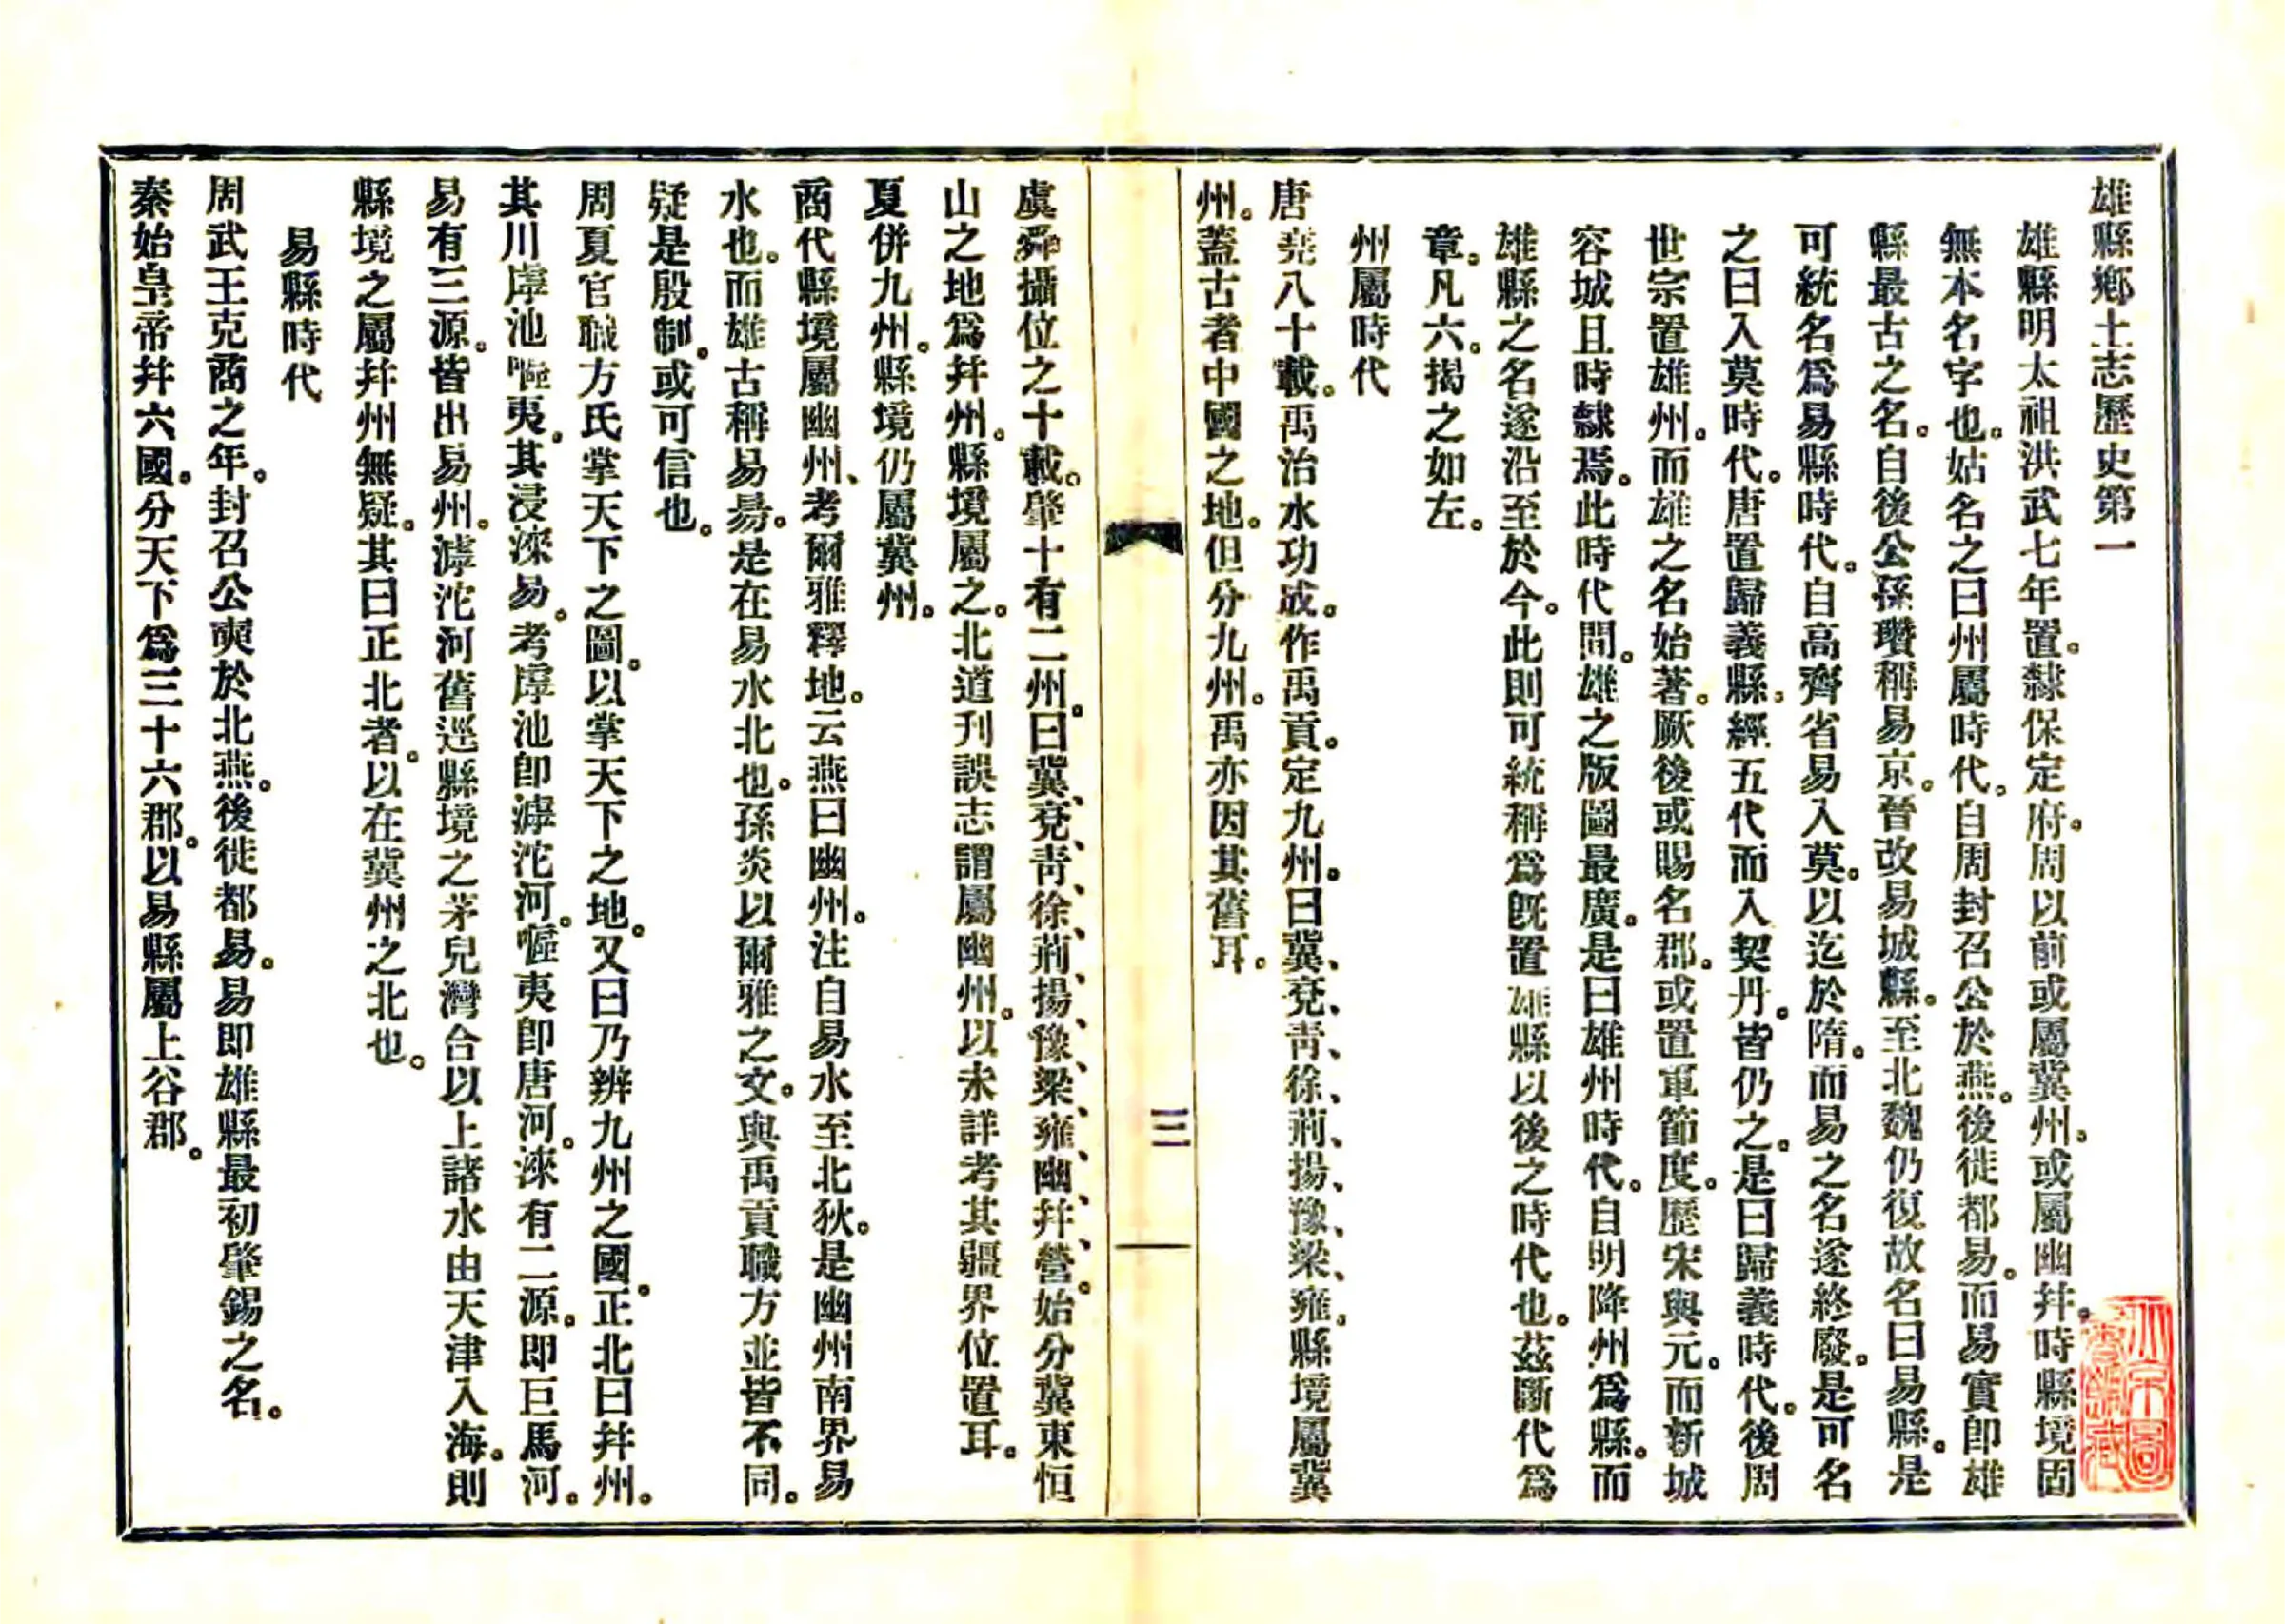 雄縣鄉土志歷史第一
雄縣明太祖洪武七年置。隸保定府。周以前或屬冀州。或屬幽幷。時縣境固
無本名字也。姑名之曰州屬時代。自周封召公於燕。後徙都易。而易實即雄
縣最古之名。自後公孫瓚稱易京。晉改易城縣。至北魏仍復故名曰易縣。是
可統名爲易縣時代。自高齊省易入莫。以迄於隋。而易之名遂終廢。是可名
之曰入莫時代。唐置歸義縣。經五代而入契丹。皆仍之。是曰歸義時代。後周
世宗置雄州。而雄之名始著。厥後或賜名郡。或置軍節度。歷宋與元。而新城
容城且時隸焉。此時代間。雄之版圖最廣。是曰雄州時代。自明降州爲縣。而
雄縣之名遂沿至於今。此則可統稱爲旣置雄縣以後之時代也。茲斷代爲
章。凡六。揭之如左。
州屬時代
唐堯八十載。禹治水功成。作禹貢。定九州。曰冀、兗、靑、徐、荊、揚、豫、梁、雍。縣境屬冀
州。蓋古者中國之地。但分九州。禹亦因其舊耳。
三
虞舜攝位之十載。肇十有二州。曰冀、兗、靑、徐、荊、揚、豫、梁、雍、幽、幷、營。始分冀東恒
山之地爲幷州。縣境屬之。北道刊誤志謂屬幽州。以未詳考其疆界位置耳。
夏併九州。縣境仍屬冀州。
商代縣境屬幽州、考爾雅釋地。云燕曰幽州。注自易水至北狄。是幽州南界易
水也。而雄古稱易昜。是在易水北也。孫炎以爾雅之文。與禹貢職方並皆不同。
疑是殷制。或可信也。
周夏官職方氏掌天下之圖。以掌天下之地。又曰乃辨九州之國。正北曰幷州。
其川虖池嘔夷。其浸淶易。考虖池卽滹沱河。嘔夷卽唐河。淶有二源。即巨馬河。
易有三源。皆出易州。滹沱河舊逕縣境之茅兒灣合以上諸水由天津入海。則
縣境之屬幷州無疑。其曰正北者。以在冀州之北也。
易縣時代
周武王克商之年。封召公奭於北燕。後徙都易。易即雄縣最初肇錫之名。
秦始皇帝幷六國。分天下爲三十六郡。以易縣屬上谷郡。